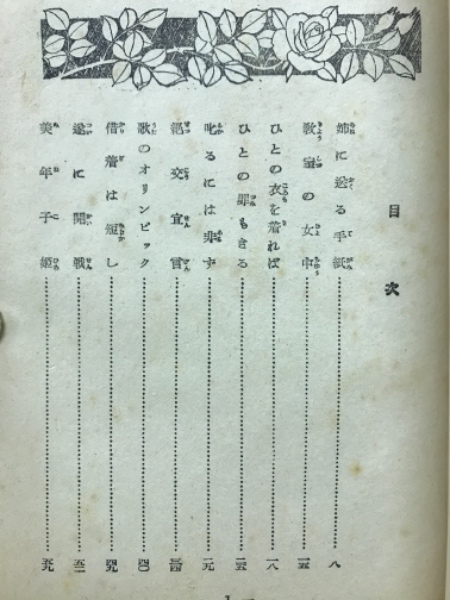 目次
姉に送る手紙 八
教室の女中 一五
ひとの衣を着れば 一八
ひとの罪もきる 二五
叱るには非ず 二九
絶交宣言 三四
歌のオリンピック 四〇
借着は短し 四九
遂に開戦 五二
美年子姫 五九